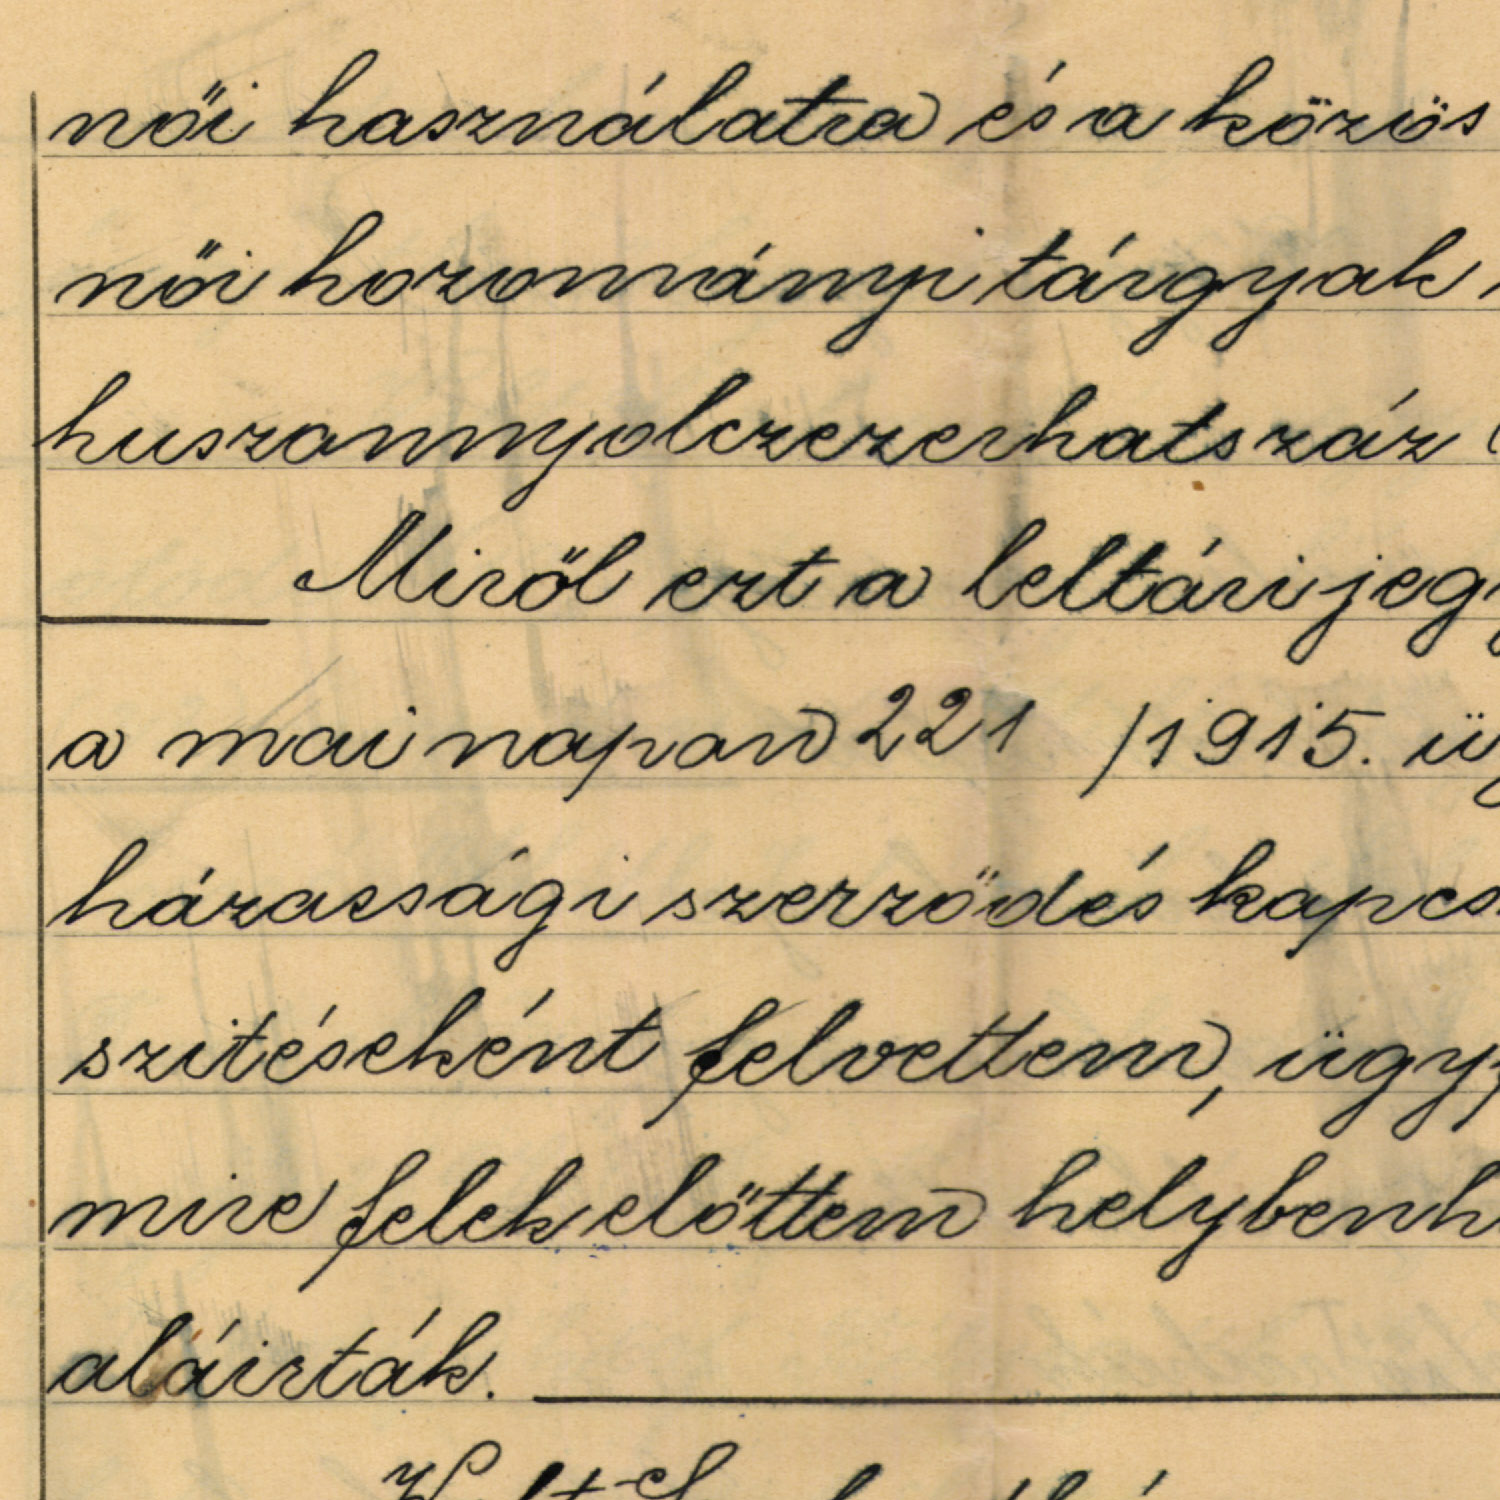 női használatra és a közös
női hozományi tárgyak
huszonnyolczezerhatszáz (
Miről ezt a leltári jegy
a mai napon 221 /1915. üg
házassági szerződés kapcs
szitéseként felvettem, ügyf
mire felek előttem helybenh
aláirták.
Kelt